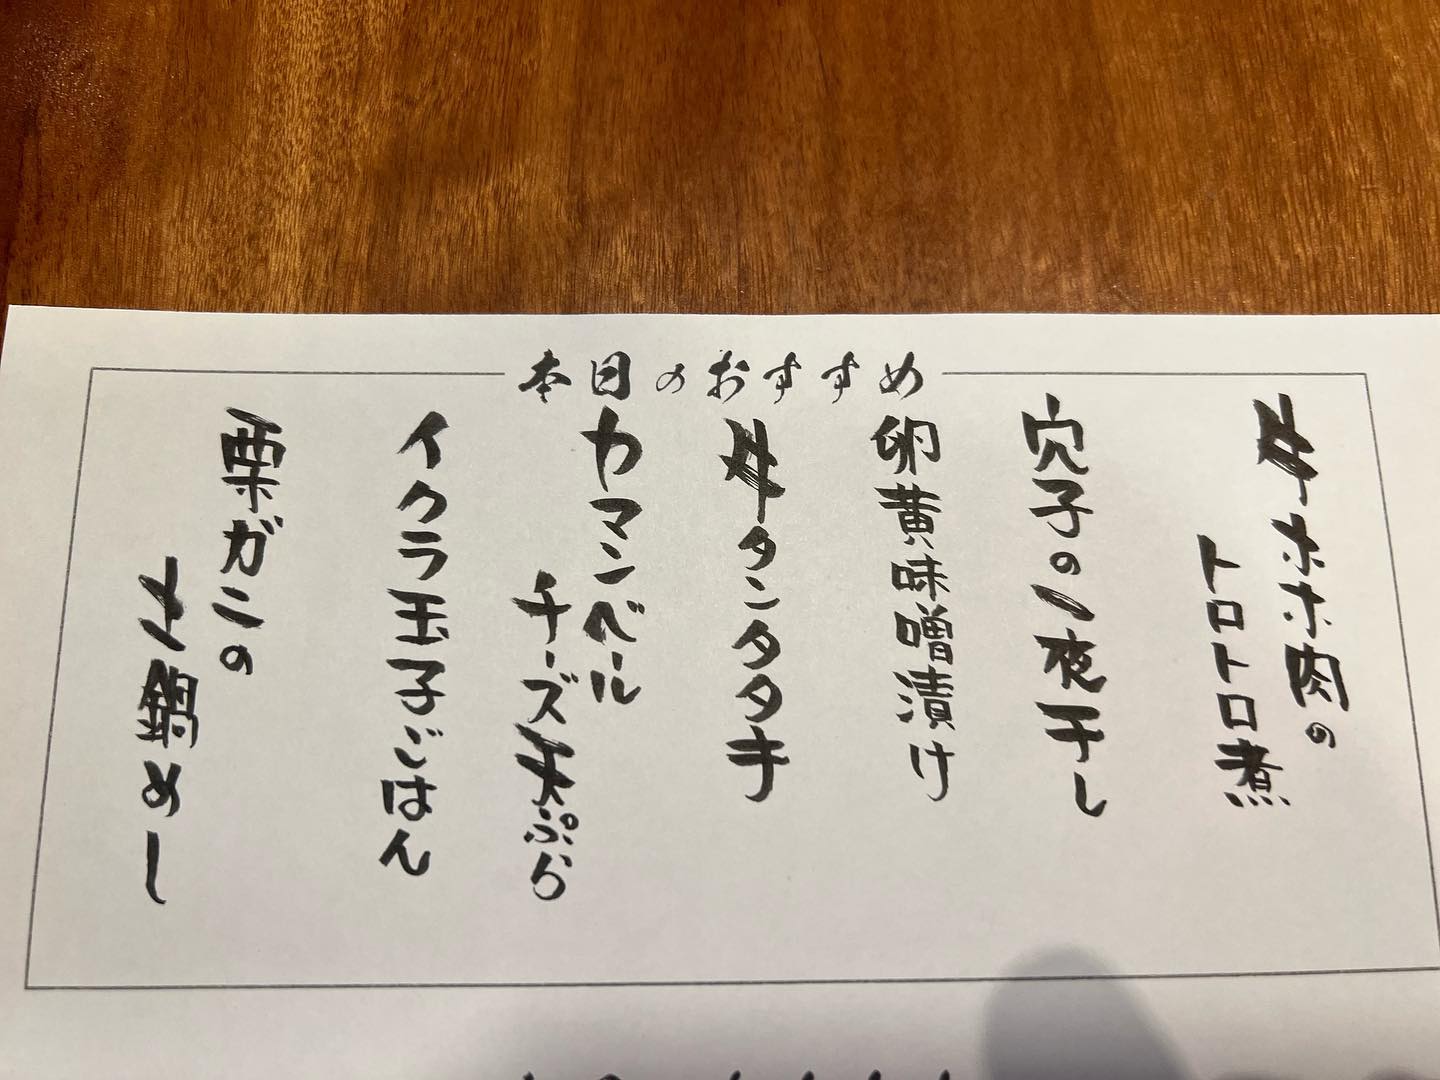 本日のおすすめ
牛ホホ肉の
トロトロ煮
穴子の一夜干し
卵黄味噌漬け
牛タンタタキ
カマンベール
チーズ天ぷら
イクラ玉子ごはん
栗ガニの
土鍋めし